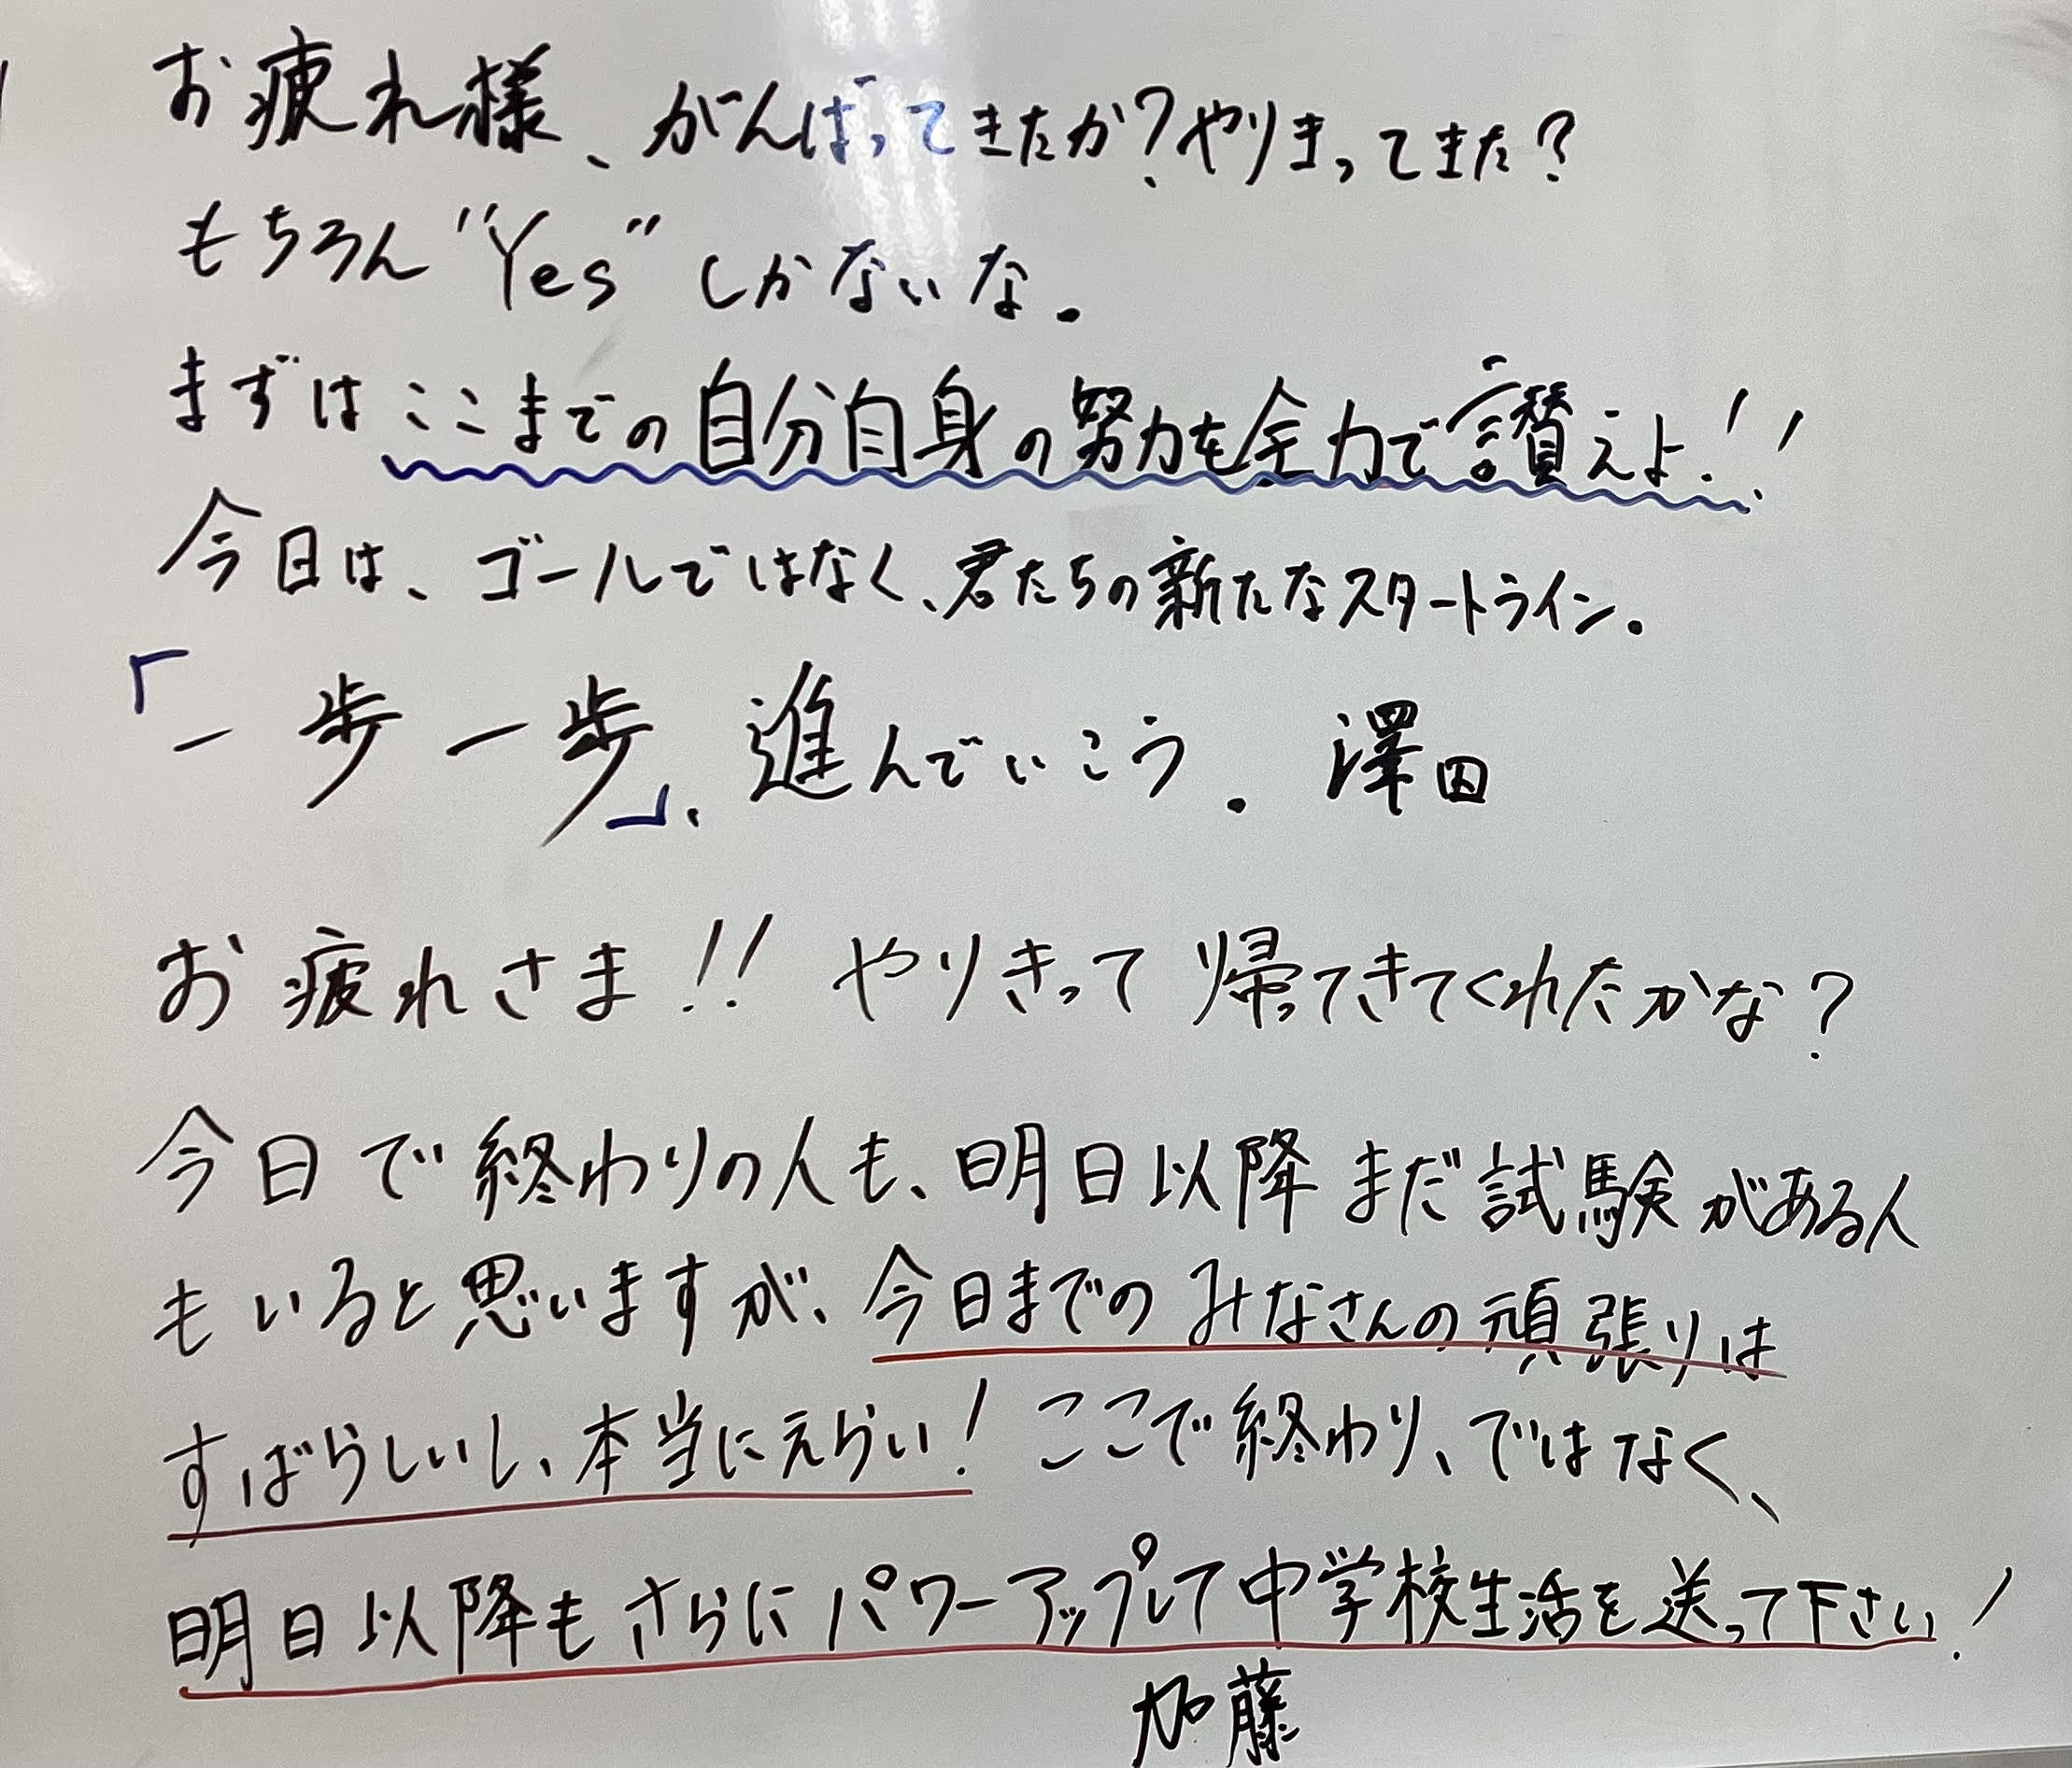 お疲れ様、がんばってきたか?やりきってきた?
もちろん"Yes"しかないな。
まずはここまでの自分自身の努力を全力で讃えよ!!
今日は、ゴールではなく、君たちの新たなスタートライン。
「一歩一歩」、進んでいこう。 澤田
お疲れさま!! やりきって帰ってきてくれたかな?
今日で終わりの人も、明日以降まだ試験がある人
もいると思いますが、今日までのみなさんの頑張りは
すばらしいし、本当にえらい! ここで終わり、ではなく、
明日以降もさらにパワーアップして中学校生活を送って下さい!
加藤